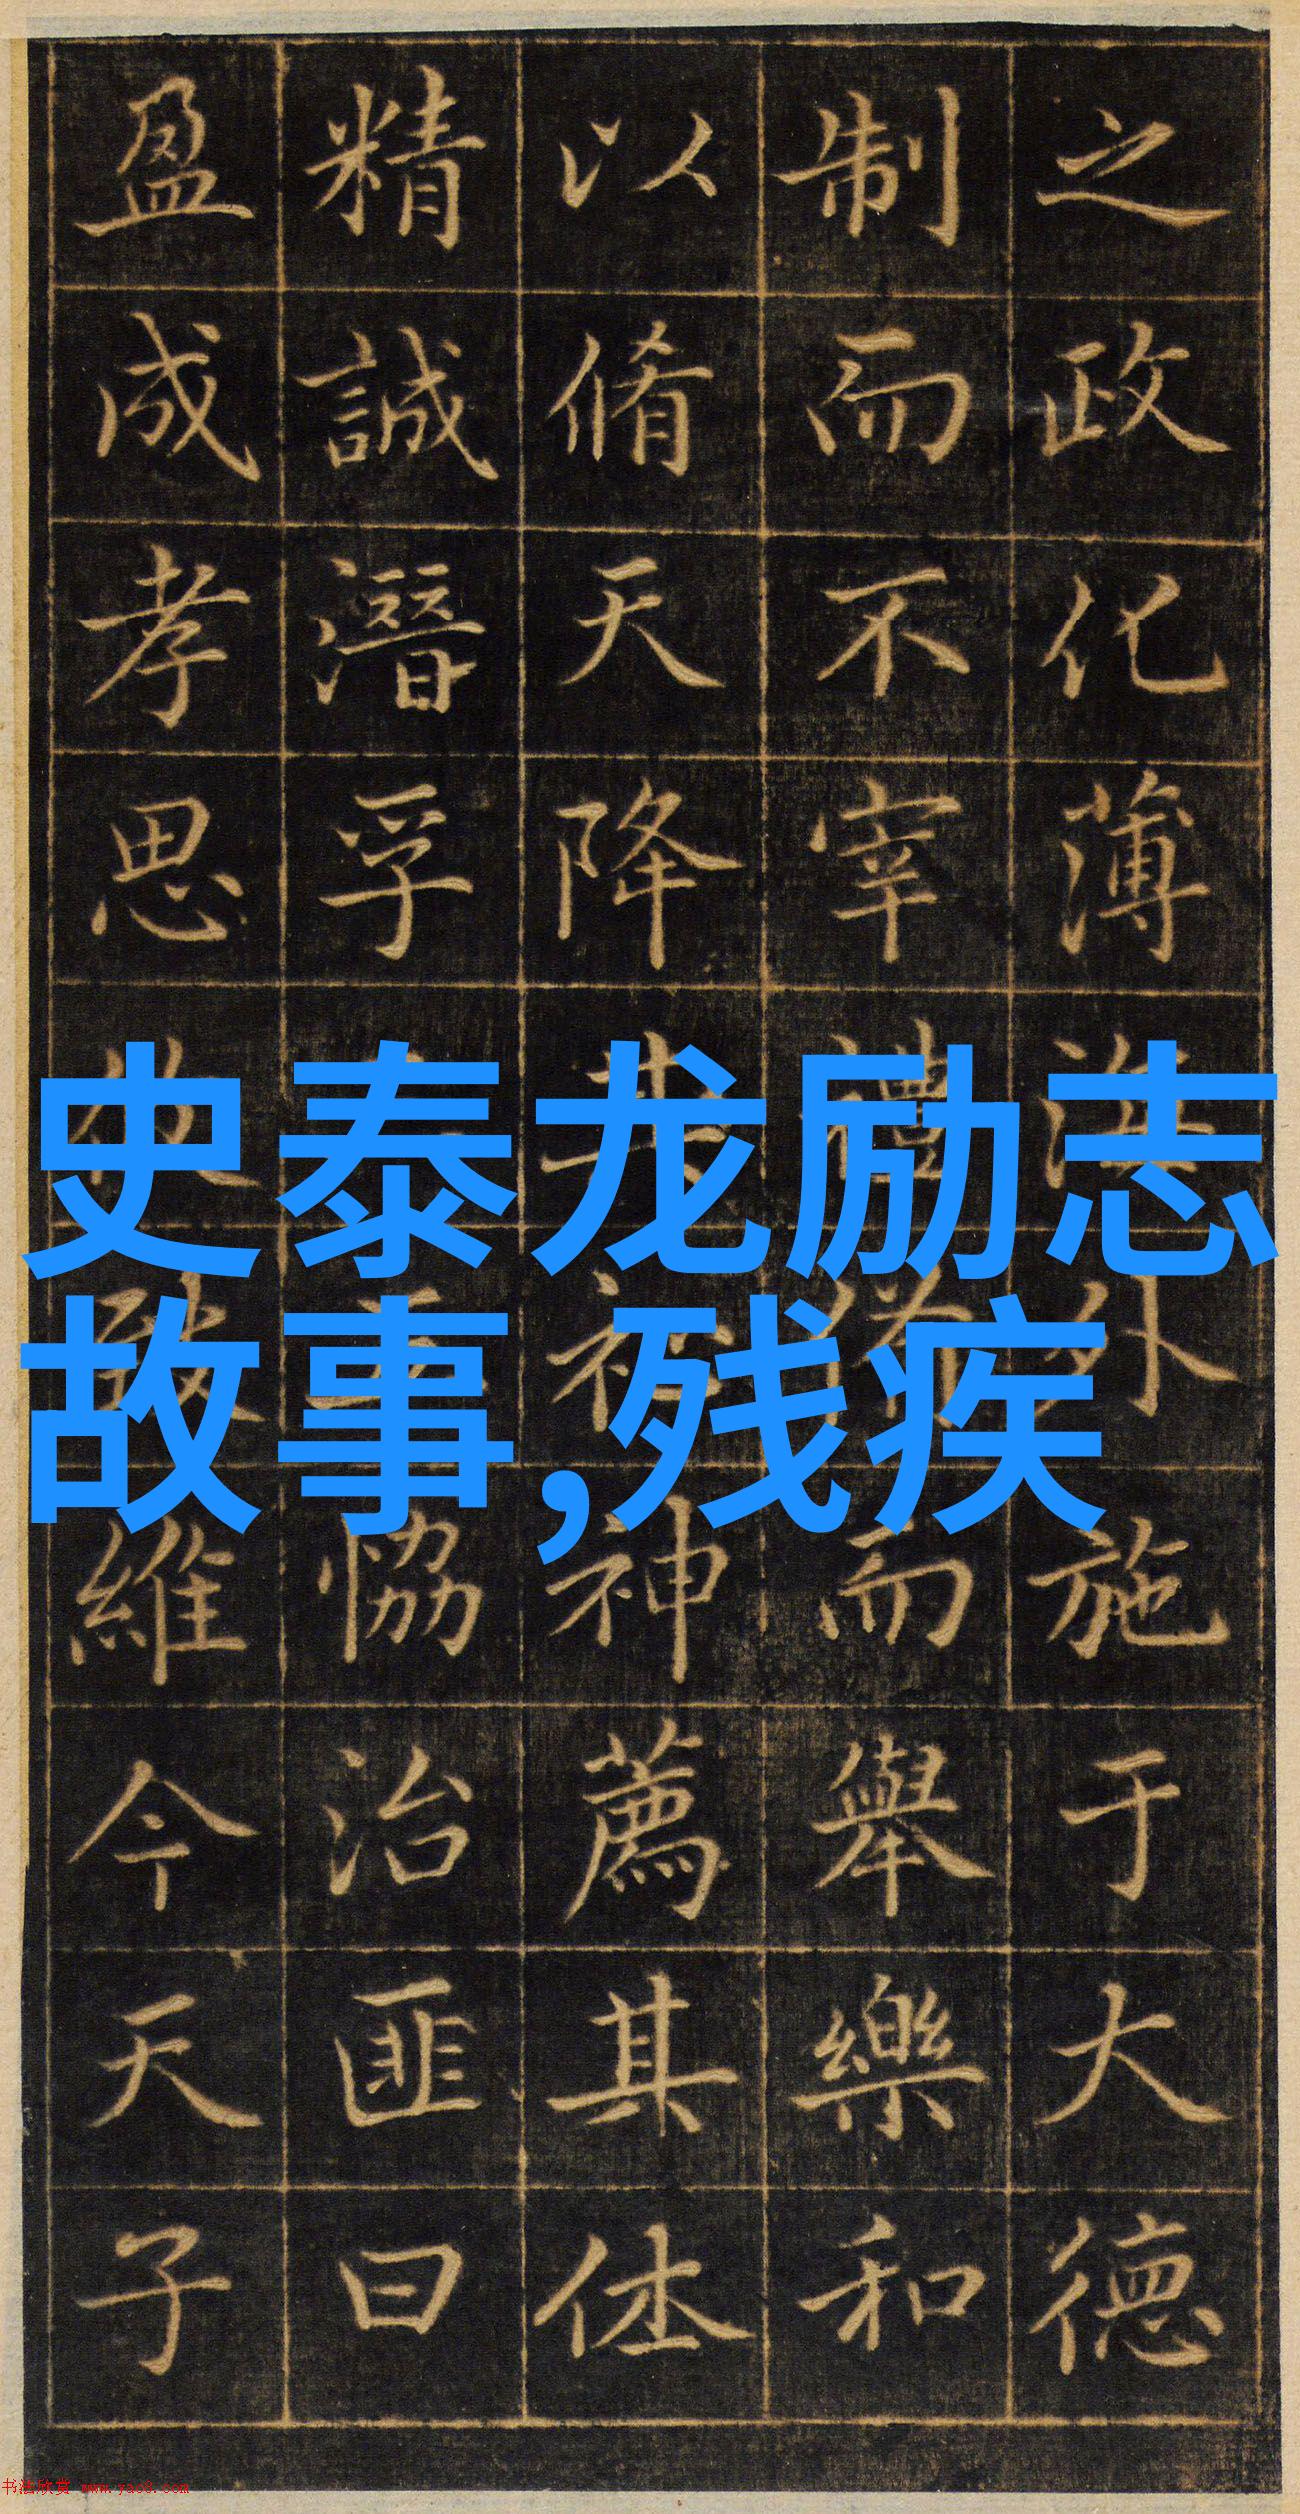 史泰龙励志
故事,残疾
之政化薄海外施于大德
制而不宰禮而舉樂和
以脩天降其神薦其休
精誠潛孚恊洽匪曰
盈成孝思維今天子
书法欣赏 www.yac8.com